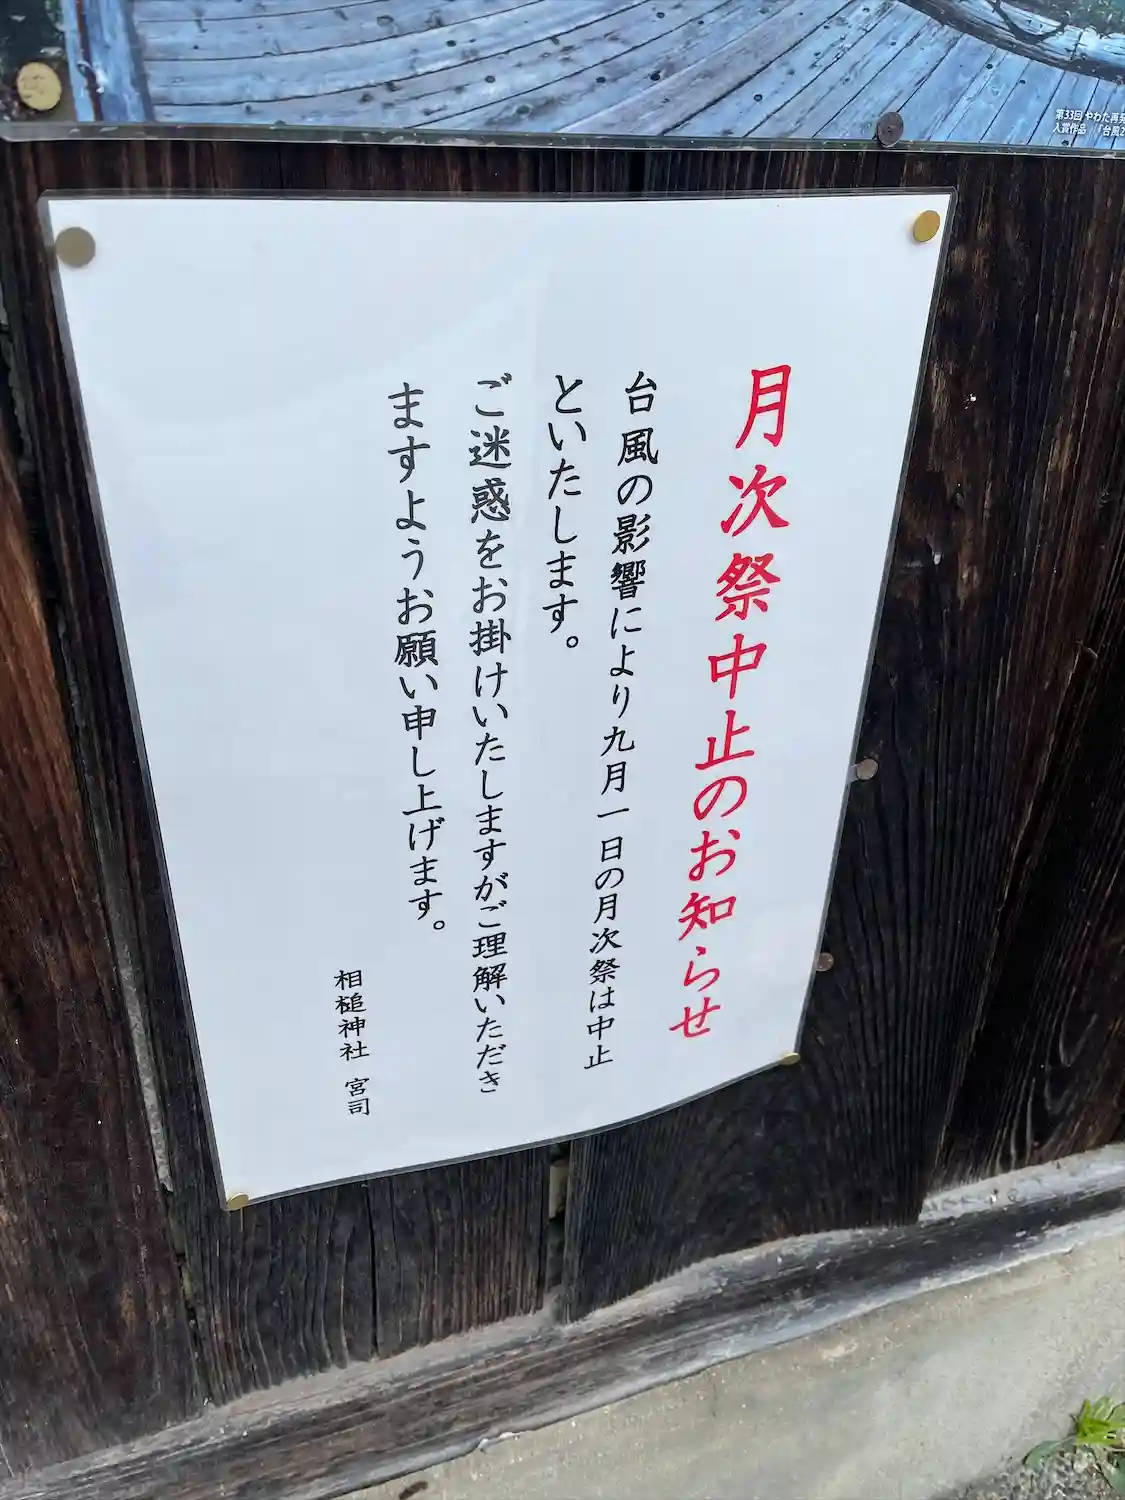 第33回 やわた再発
入賞作品 「台風2
月次祭中止のお知らせ
台風の影響により九月一日の月次祭は中止
といたします。
ご迷惑をお掛けいたしますがご理解いただき
ますようお願い申し上げます。
相槌神社 宮司